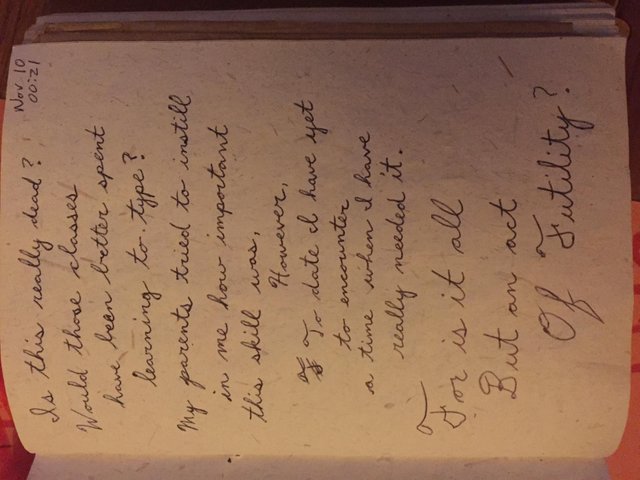 Nov 10
00:21
Is this really dead?
Would those classes
have been better spent
learning to type?
My parents tried to instill
in me how important
this skill was,
However,
To date I have yet
to encounter
a time when I have
really needed it.
For is it all
But an act
Of Futility?